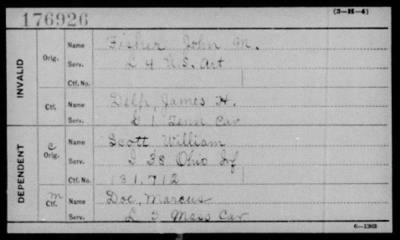 176926
(3—H—4)
INVALID
Orig. Name Fisher John M.
Serv. L 4 U.S. Art
Ctf. No.
Ctf. Name James H.
Serv. 1 Tenn Cav
DEPENDENT
C Orig. Name Scott William
Serv. I 38 Ohio Inf
Ctf. No. 131,712
M Ctf. Name Doe, Marcus
Serv. L 3 Mass Cav
6—1303